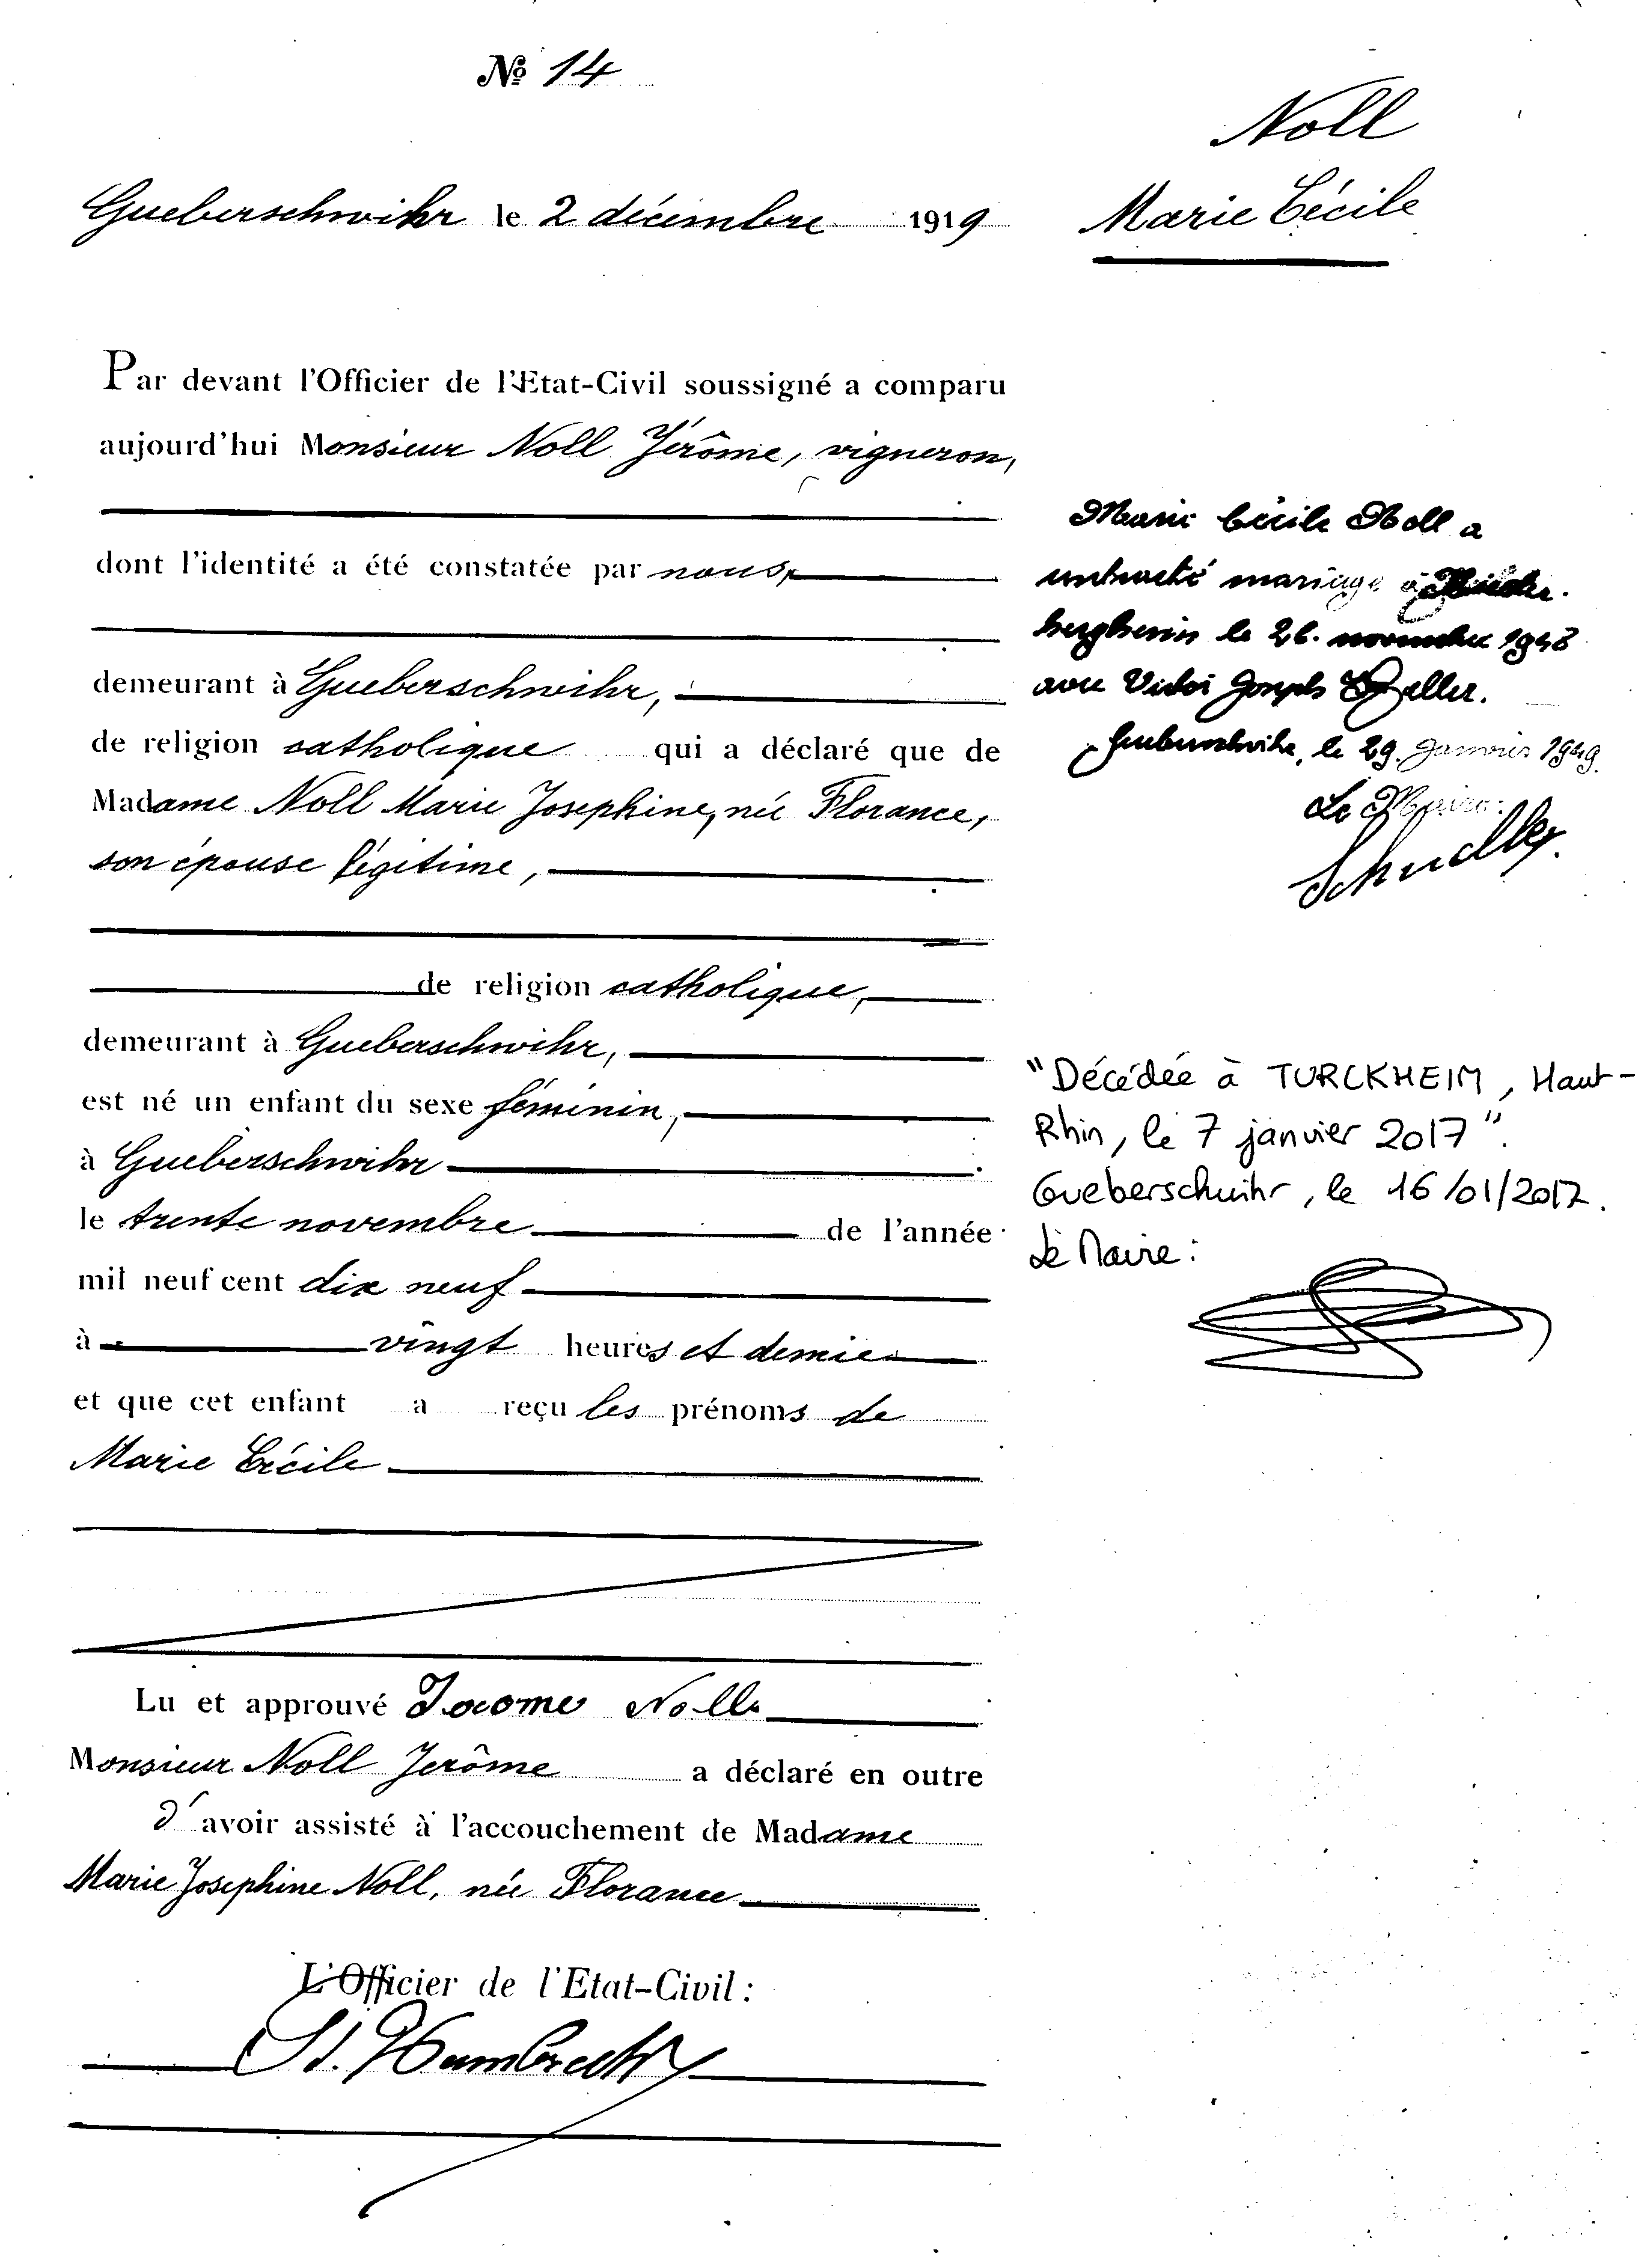 № 14
Noll
Marie Cécile
Gueberschwihr le 2 décembre 1919
Par devant l'Officier de l'Etat-Civil soussigné a comparu
aujourd'hui Monsieur Noll Jérôme, vigneron,
dont l'identité a été constatée par nous,
demeurant à Gueberschwihr,
de religion catholique qui a déclaré que de
Madame Noll Marie Josephine, née Florance,
son épouse légitime,
de religion catholique,
demeurant à Gueberschwihr,
est né un enfant du sexe féminin,
à Gueberschwihr
le trente novembre de l'année
mil neuf cent dix neuf
à vingt heures et demie
et que cet enfant a reçu les prénoms de
Marie Cécile
Lu et approuvé Noll
Monsieur Noll Jerôme a déclaré en outre
d'avoir assisté à l'accouchement de Madame
Marie Josephine Noll, née Florance
L'Officier de l'Etat-Civil :
St. Humbrecht
Marie Cécile Noll a
contracté mariage à Nieder-
bergheim le 26. novembre 1948
avec Victor Joseph Zeller.
Gueberschwihr, le 29. Janvier 1949.
Le Maire:
"Décédée à TURCKHEIM, Haut-
Rhin, le 7 janvier 2017".
Gueberschwihr, le 16/01/2017.
Le Maire :